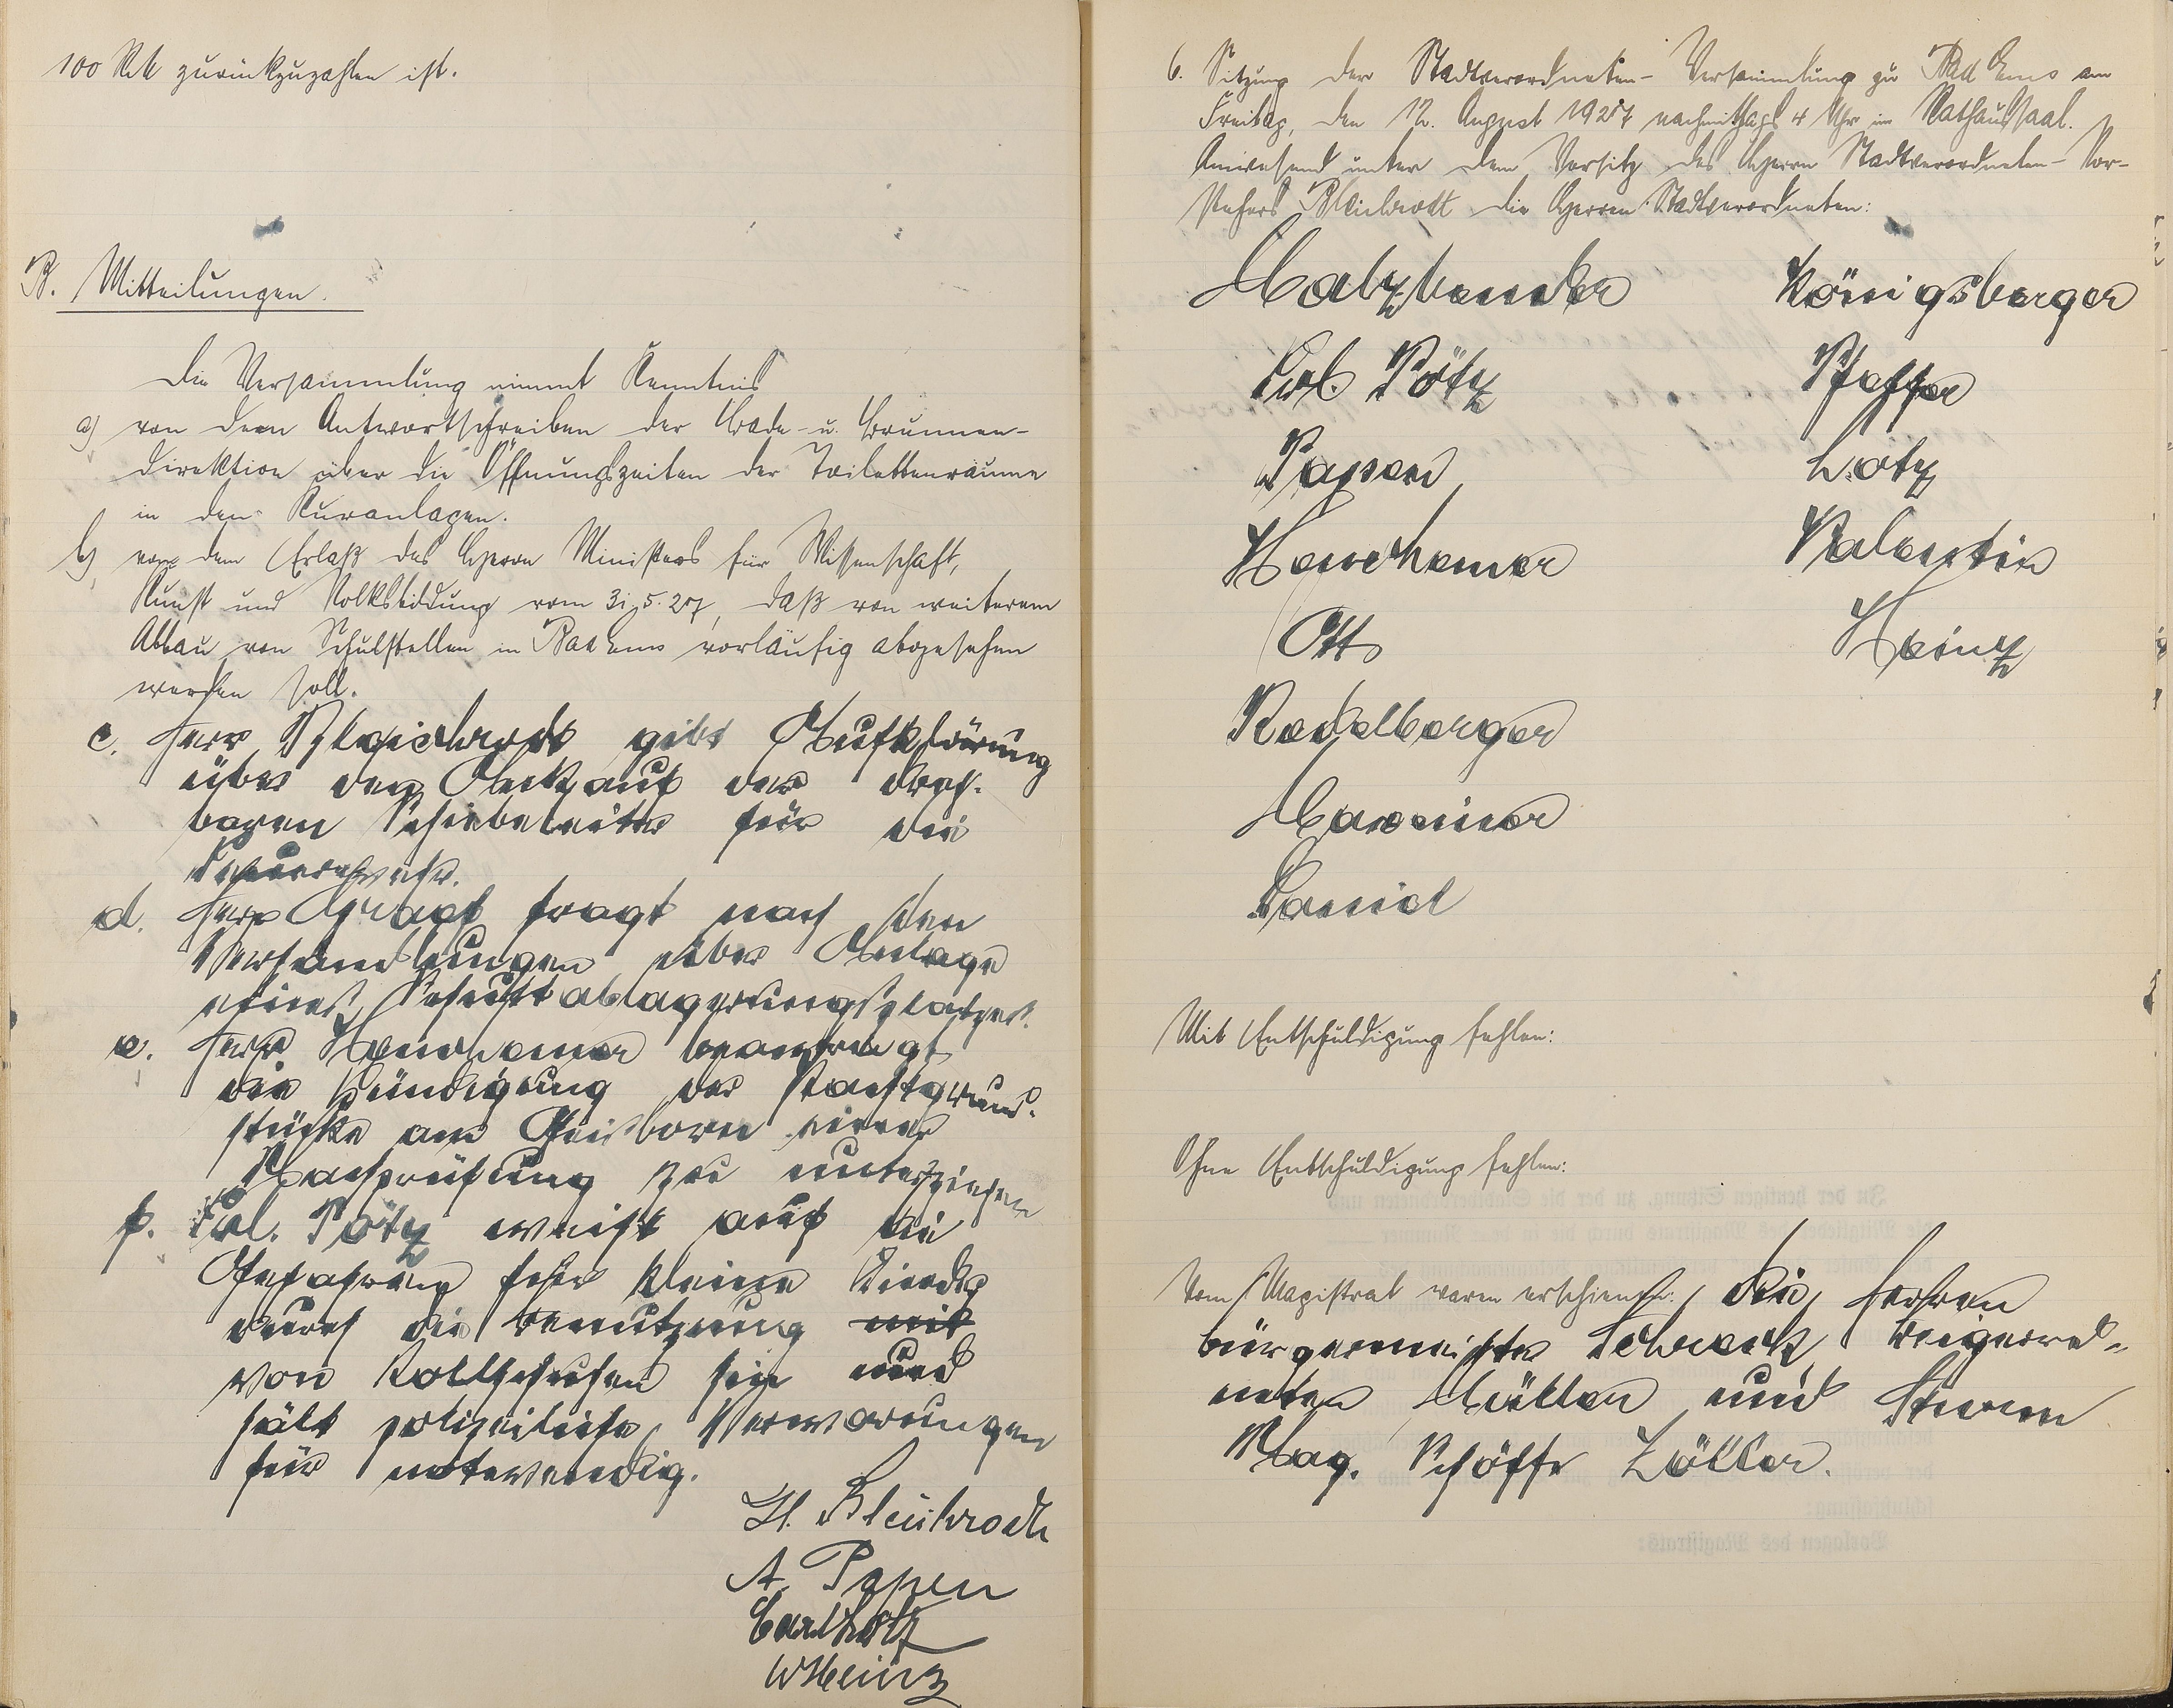 100 Rℳ zurückzuzahlen ist.
B. Mitteilungen.
Die Versammlung nimmt Kenntnis
a) von dem Antwortschreiben der Bade- u. Brunnen-
direktion über die Öffnungszeiten der Toilettenräume
in den Kuranlagen.
b) von dem Erlaß des Herrn Ministers für Wissenschaft,
Kunst und Volksbildung vom 31.5.27, daß von weiterem
Abbau von Schulstellen in Bad Ems vorläufig abgesehen
werden soll.
c. Herr Bleichrodt gibt Aufklärung
über den Ankauf der dreh-
baren Schiebeleiter für die
Feuerwehr.
d. Herr Graef fragt nach den
Verhandlungen über Anlage
eines Schuttablagerungsplatzes.
e. Herr Heuchemer beantragt
die Kündigung der Pachtgrund-
stücke am Geisborn einer
Nachprüfung zu unterziehen
f. Frl. Pötz weist auf die
Gefahren sehr kleiner Kinder
durch die Benutzung mit
von Rollschuhen hin und
hält polizeiliche Verwarungen
für notwendig.
H. Bleichrodt
A. Papen
Carl Lotz
W Heinz
6. Sitzung der Stadtverordneten-Versammlung zu Bad Ems am
Freitag, den 12. August 1927 nachmittags 4 Uhr im Rathaussaal.
Anwesend unter dem Vorsitz des Herrn Stadtverordneten-Vor-
stehers Bleichrodt die Herren Stadtverordneten:
Malzbender Königsberger
Frl. Pötz Pfeffer
Papen Lotz
Heuchemer Valentin
Ott Heinz
Kadelberger
Maxeiner
Daniel
Mit Entschuldigung fehlen:
Ohne Entschuldigung fehlen:
Vom Magistrat waren erschienen: die Herren
Bürgermeister Schreck Beigeord-
neten Müller und Sturm
Mag. Schöffe Zöller.